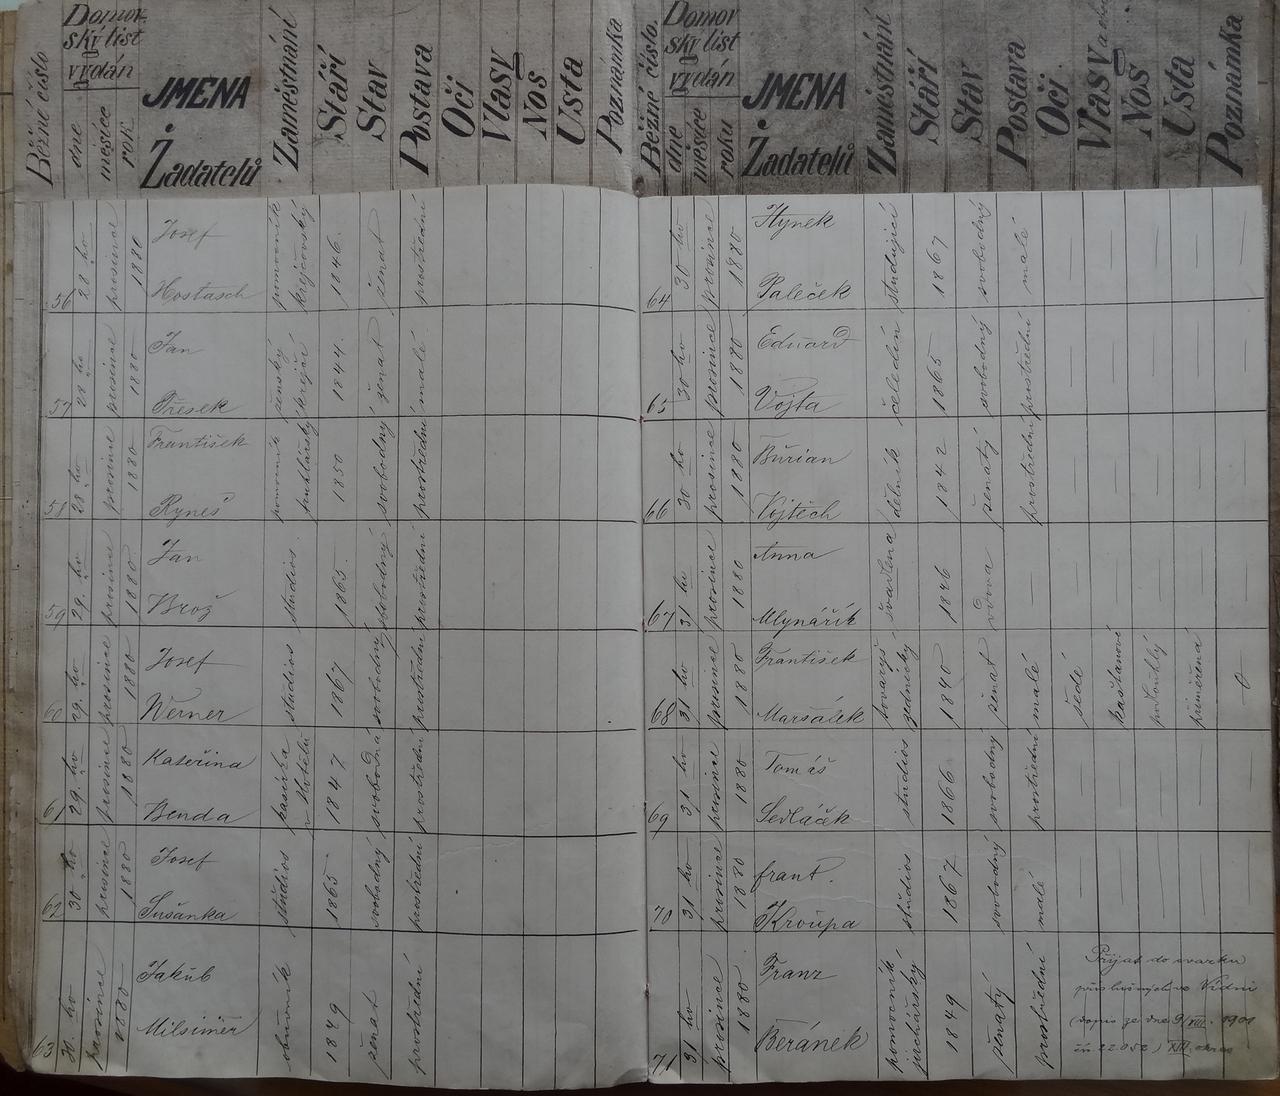 Běžné číslo
Domovský list vydán
dne
měsíce
rok
JMENA Žadatelů
Zaměstnání
Stáří
Stav
Postava
Oči
Vlasy
Nos
Usta
Poznámka
56 28. ho prosince 1880 Josef Hostasch pomocník krejčovský 1846. ženat prostřední
57 28 ho prosince 1880 Jan Přesek ženský krejčí 1844. ženat malé
58 28 ho prosince 1880 František Ryneš pomocník truhlářský 1850 svobodný prostřední
59 29. ho prosince 1880 Jan Brož studios. 1865. svobodný prostřední
60 29. ho prosince 1880 Josef Werner studios 1867 svobodný prostřední
61 29. ho prosince 1880 Kateřina Benda kasírka v hotelu 1847 svobodna prostřední
62 30 ho prosince 1880 Josef Sušanka studios 1865 svobodný prostřední
63 30. ho prosince 1880 Jakub obuvník 1849 ženat prostřední
Běžné číslo.
Domovský list vydán
dne
měsíce
roku
JMENA Žadatelů
Zaměstnání
Stáří
Stav
Postava
Oči
Vlasy
Nos
Usta
Poznámka
64 30 ho prosince 1880 Hynek Paleček studující 1867 svobodný malé — — — — —
65 30 ho prosince 1880 Eduard Vojta čeledín 1865 svobodný prostřední — — — — —
66 30 ho prosince 1880 Burian Vojtěch dělník 1842 ženatý prostřední — — — — —
67 31 ho prosince 1880 Anna Mlynářík švadlena 1826 vdova — — — — — —
68 31 ho prosince 1880 František Maršálek tovaryš zednický 1840 ženat malé šedé kaštanové podlouhlý přiměřená 0
69 31 ho prosince 1880 Tomáš Sedláček studios 1866 svobodný prostřední — — — — —
70 31 ho prosince 1880 frant. Kroupa studios 1867 svobodný malé — — — — —
71 31 ho prosince 1880 Franz Beránek pomocník jirchářský 1849 ženatý prostřední
Přijat do svazku
příslušných ve Vídni
(dopis ze dne 9/VIII. 1901
čís. 22.052) XIII. okres